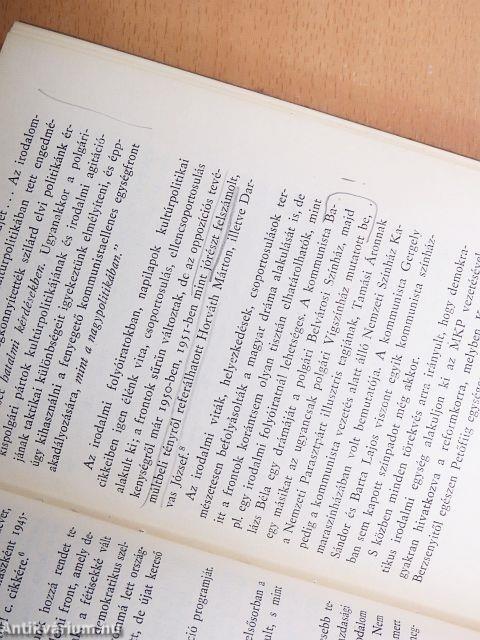 get... Az irodalom-
gkönnyítették szilárd elvi politikánk ér-
ultúrpolitikában tett engedmé-
et hatalmi kérdésekben. Ugyanakkor a polgári-
kispolgári pártok kultúrpolitikájának és irodalmi agitáció-
jának taktikai különbségeit igyekeztünk elmélyíteni, és épp-
úgy kihasználni a fenyegető kommunistaellenes egységfront
akadályozására, mint a nagypolitikában."
Az irodalmi folyóiratokban, napilapok kultúrpolitikai
cikkeiben igen élénk vita, csoportosulás, ellencsoportosulás
alakult ki; a frontok sűrűn változtak, de az oppozíciós tevé-
kenységről már 1950-ben, 1951-ben mint jórészt felszámolt,
múltbeli tényről referálhatott Horváth Márton, illetve Dar-
vas József.⁸
Az irodalmi viták, helyezkedések, csoportosulások ter-
mészetesen befolyásolták a magyar dráma alakulását is, de
itt a frontok korántsem olyan tisztán elhatárolhatók, mint
pl. egy irodalmi folyóiratnál lehetséges. A kommunista Ba-
lázs Béla egy drámáját a polgári Belvárosi Színház, majd
egy másikat az ugyancsak polgári Vígszínház mutatott be,
a Nemzeti Parasztpárt illusztris tagjának, Tamási Áronnak
pedig s kommunista vezetés alatt álló Nemzeti Színház Ka-
maraszínházában volt bemutatója. A kommunista Gergely
Sándor és Barta Lajos viszont egyik kommunista színház-
ban sem kapott színpadot még akkor.
S közben minden törekvés arra irányult, hogy demokra-
tikus irodalmi egység alakuljon ki az MKP vezetésével
gyakran hivatkozva a reformkorra, melyben K
Berzsenyitől egészen Petőfiig egysége
ever,
naszként 1943-
c. cikkére.⁶
hozzá rendet te-
front, amely de-
a fétisekké vált
demokratikus szel-
má lett ország-
de újat kereső
ció programját.
elsősorban a
s mint
sebb te-
dasági
dalom
Nem
Antikvárium.hu